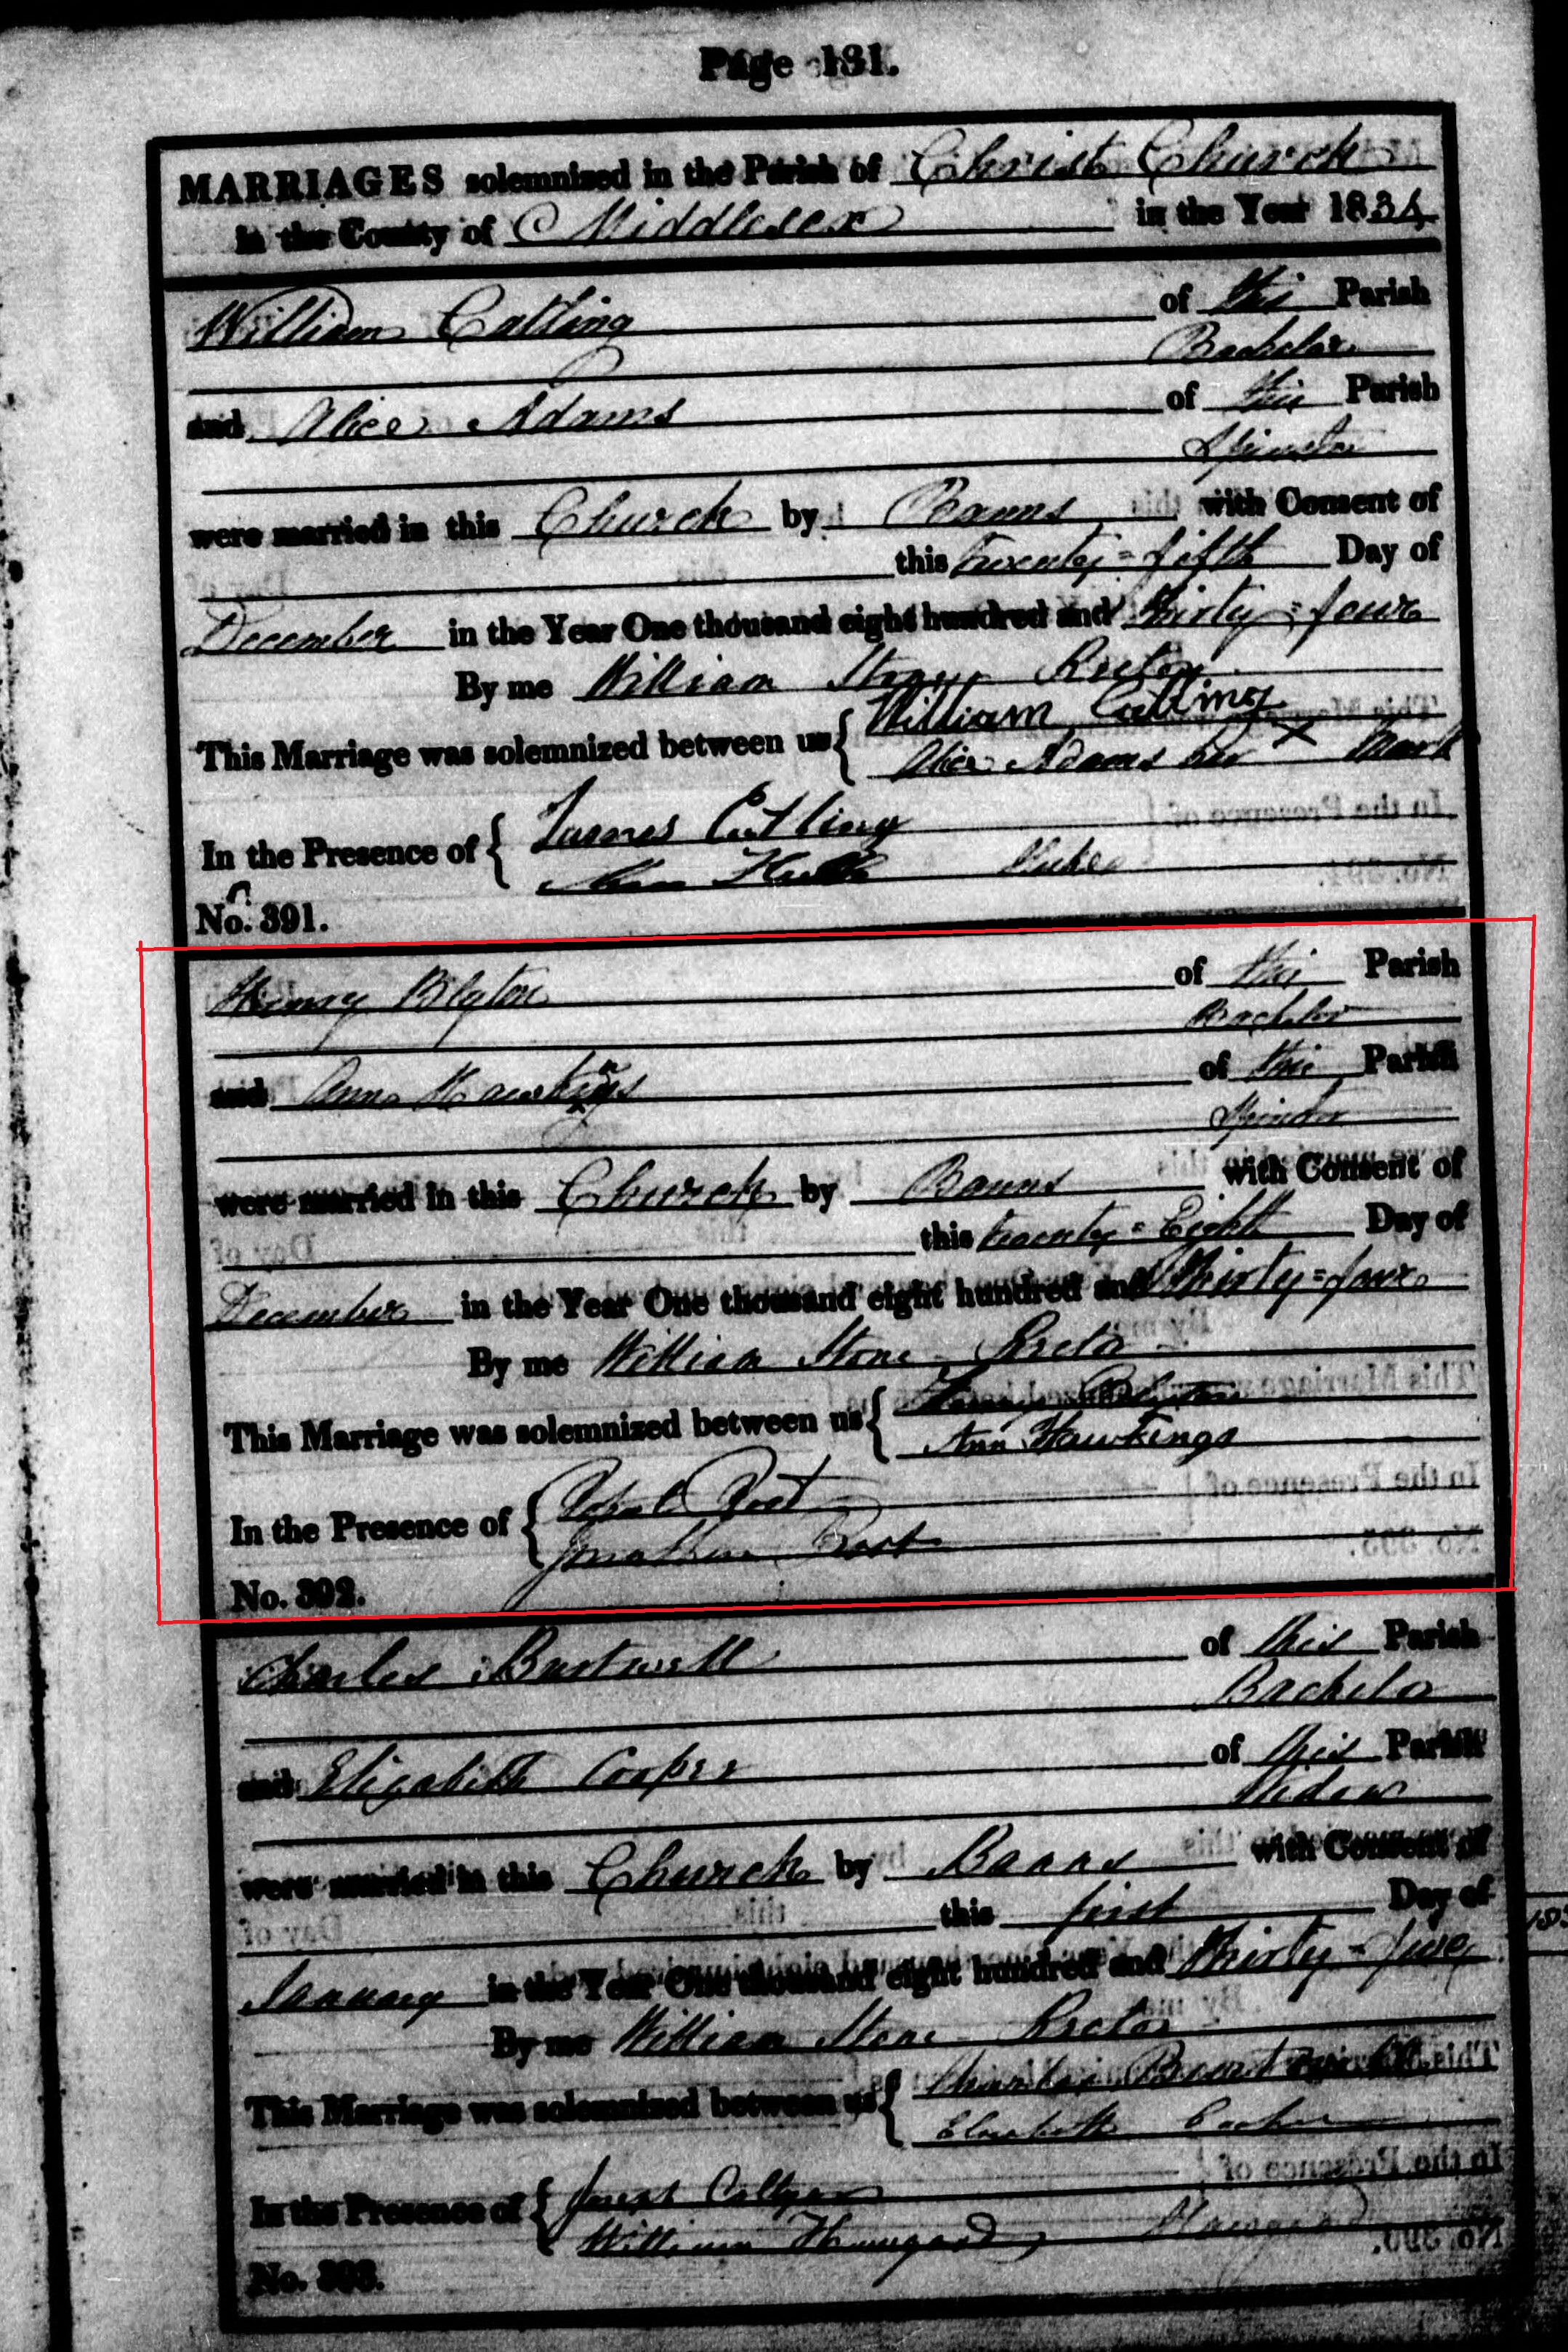 Page 131.
MARRIAGES solemnized in the Parish of Christ Church
in the County of Middlesex in the Year 1834
William Catling of this Parish
Bachelor
and Alice Adams of this Parish
Spinster
were married in this Church by Banns with Consent of
this twenty=fifth Day of
December in the Year One thousand eight hundred and thirty=four
By me William Stone Rector
This Marriage was solemnized between us { William Catling
Alice Adams her X Mark
In the Presence of { James Catling
No. 391.
Henry Blyton of this Parish
Bachelor
and Ann Hawkings of this Parish
Spinster
were married in this Church by Banns with Consent of
this twenty=Eighth Day of
December in the Year One thousand eight hundred and thirty=four
By me William Stone Rector
This Marriage was solemnized between us { Henry Blyton
Ann Hawkings
In the Presence of {
Jonathan
No. 392.
Charles Bustwell of this Parish
Bachelor
and Elizabeth Cooper of this Parish
Widow
were married in this Church by Banns with Consent of
this first Day of
January in the Year One thousand eight hundred and thirty=five
By me William Stone Rector
This Marriage was solemnized between us { Charles
Elizabeth Cooper
In the Presence of { Joseph
William
No. 393.